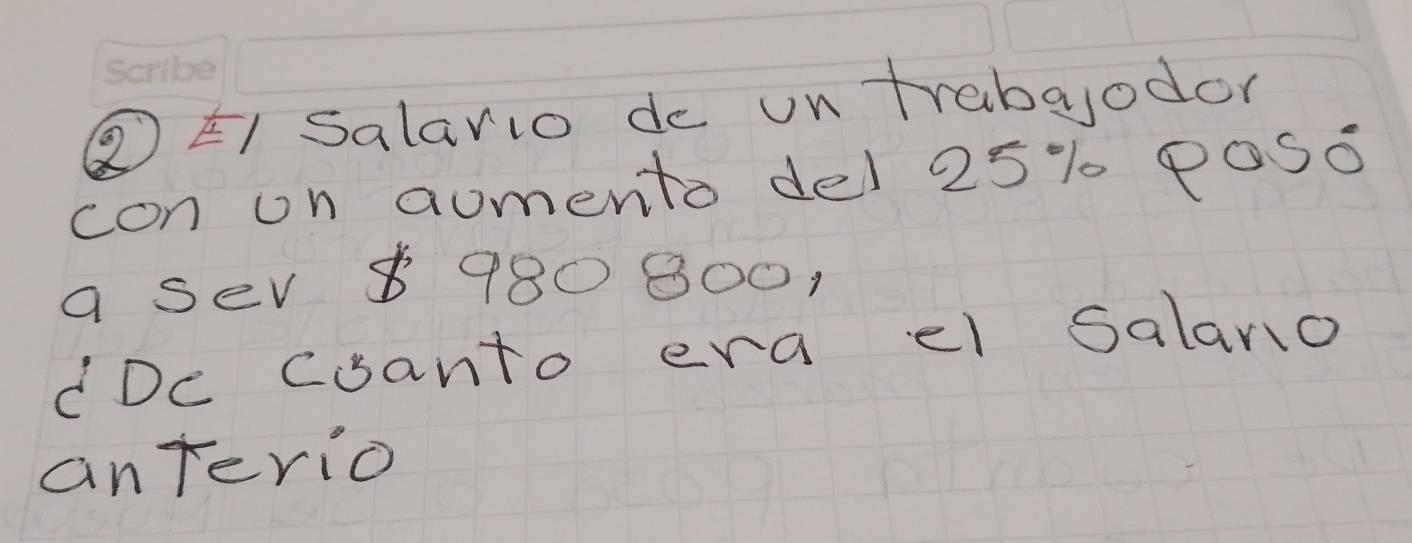 Scribe
② El salario de un trabajodor
con un aumento del 25% posó
a ser $ 980 800,
¿De cuanto era el salario
anterio